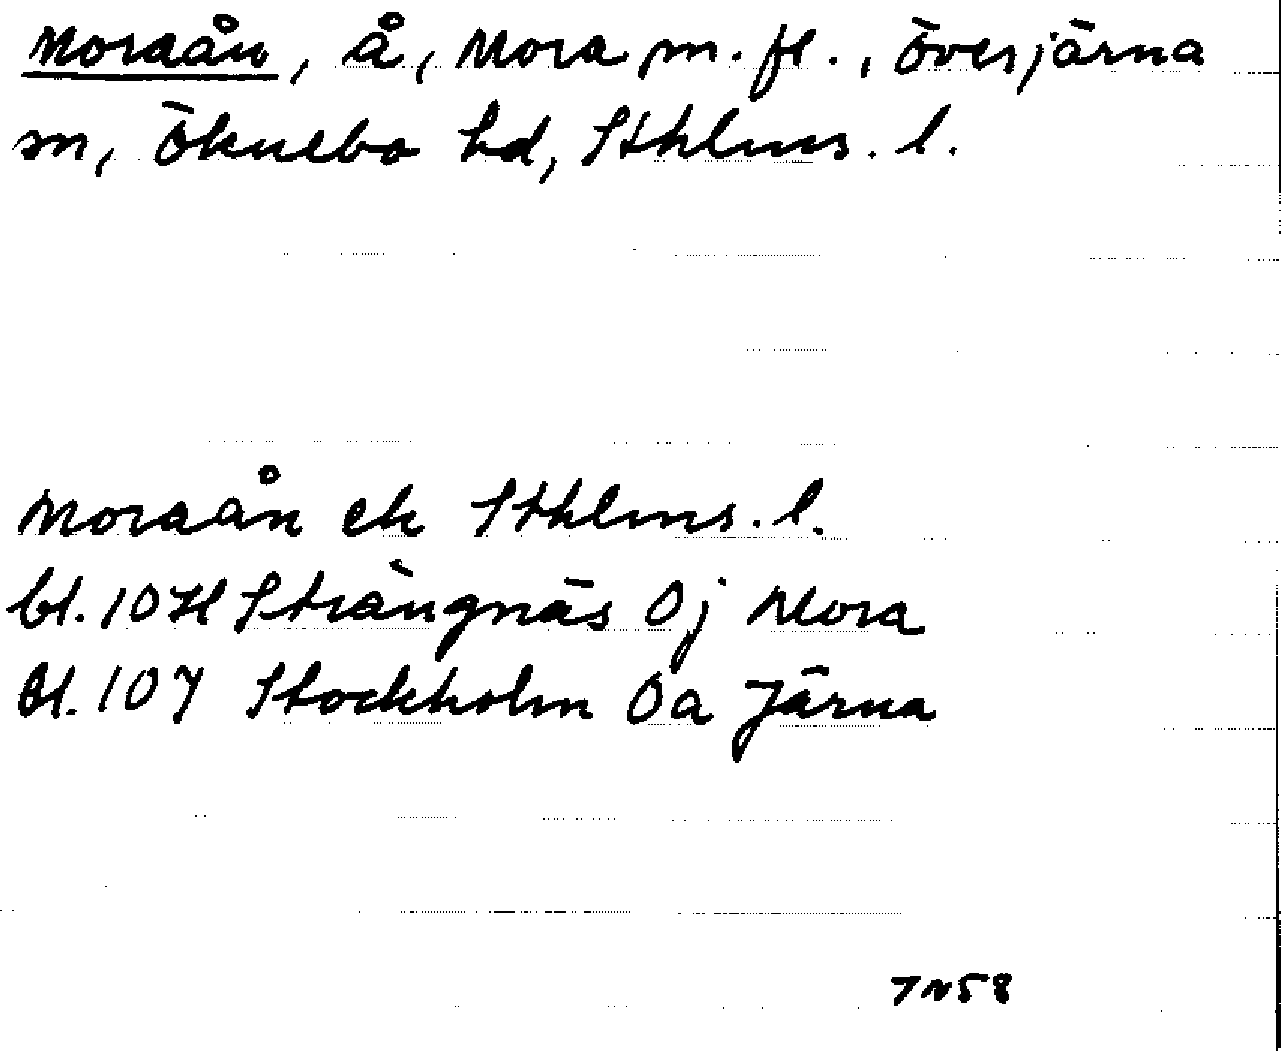 Moraån, å, Mora m. fl., Överjärna
sn, Öknebo hd, Sthlms. l.
Moraån ek Sthlms. l.
bl. 10H Strängnäs 0j Mora
Bl. 10I Stockholm 0a Järna
TN58